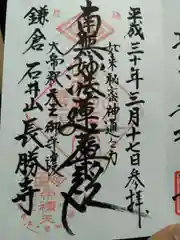 平成三十年三月十七日参拝
如来秘密神通之力
南無妙法蓮華経
大帝釈天王御守護
鎌倉 石井山 長勝寺